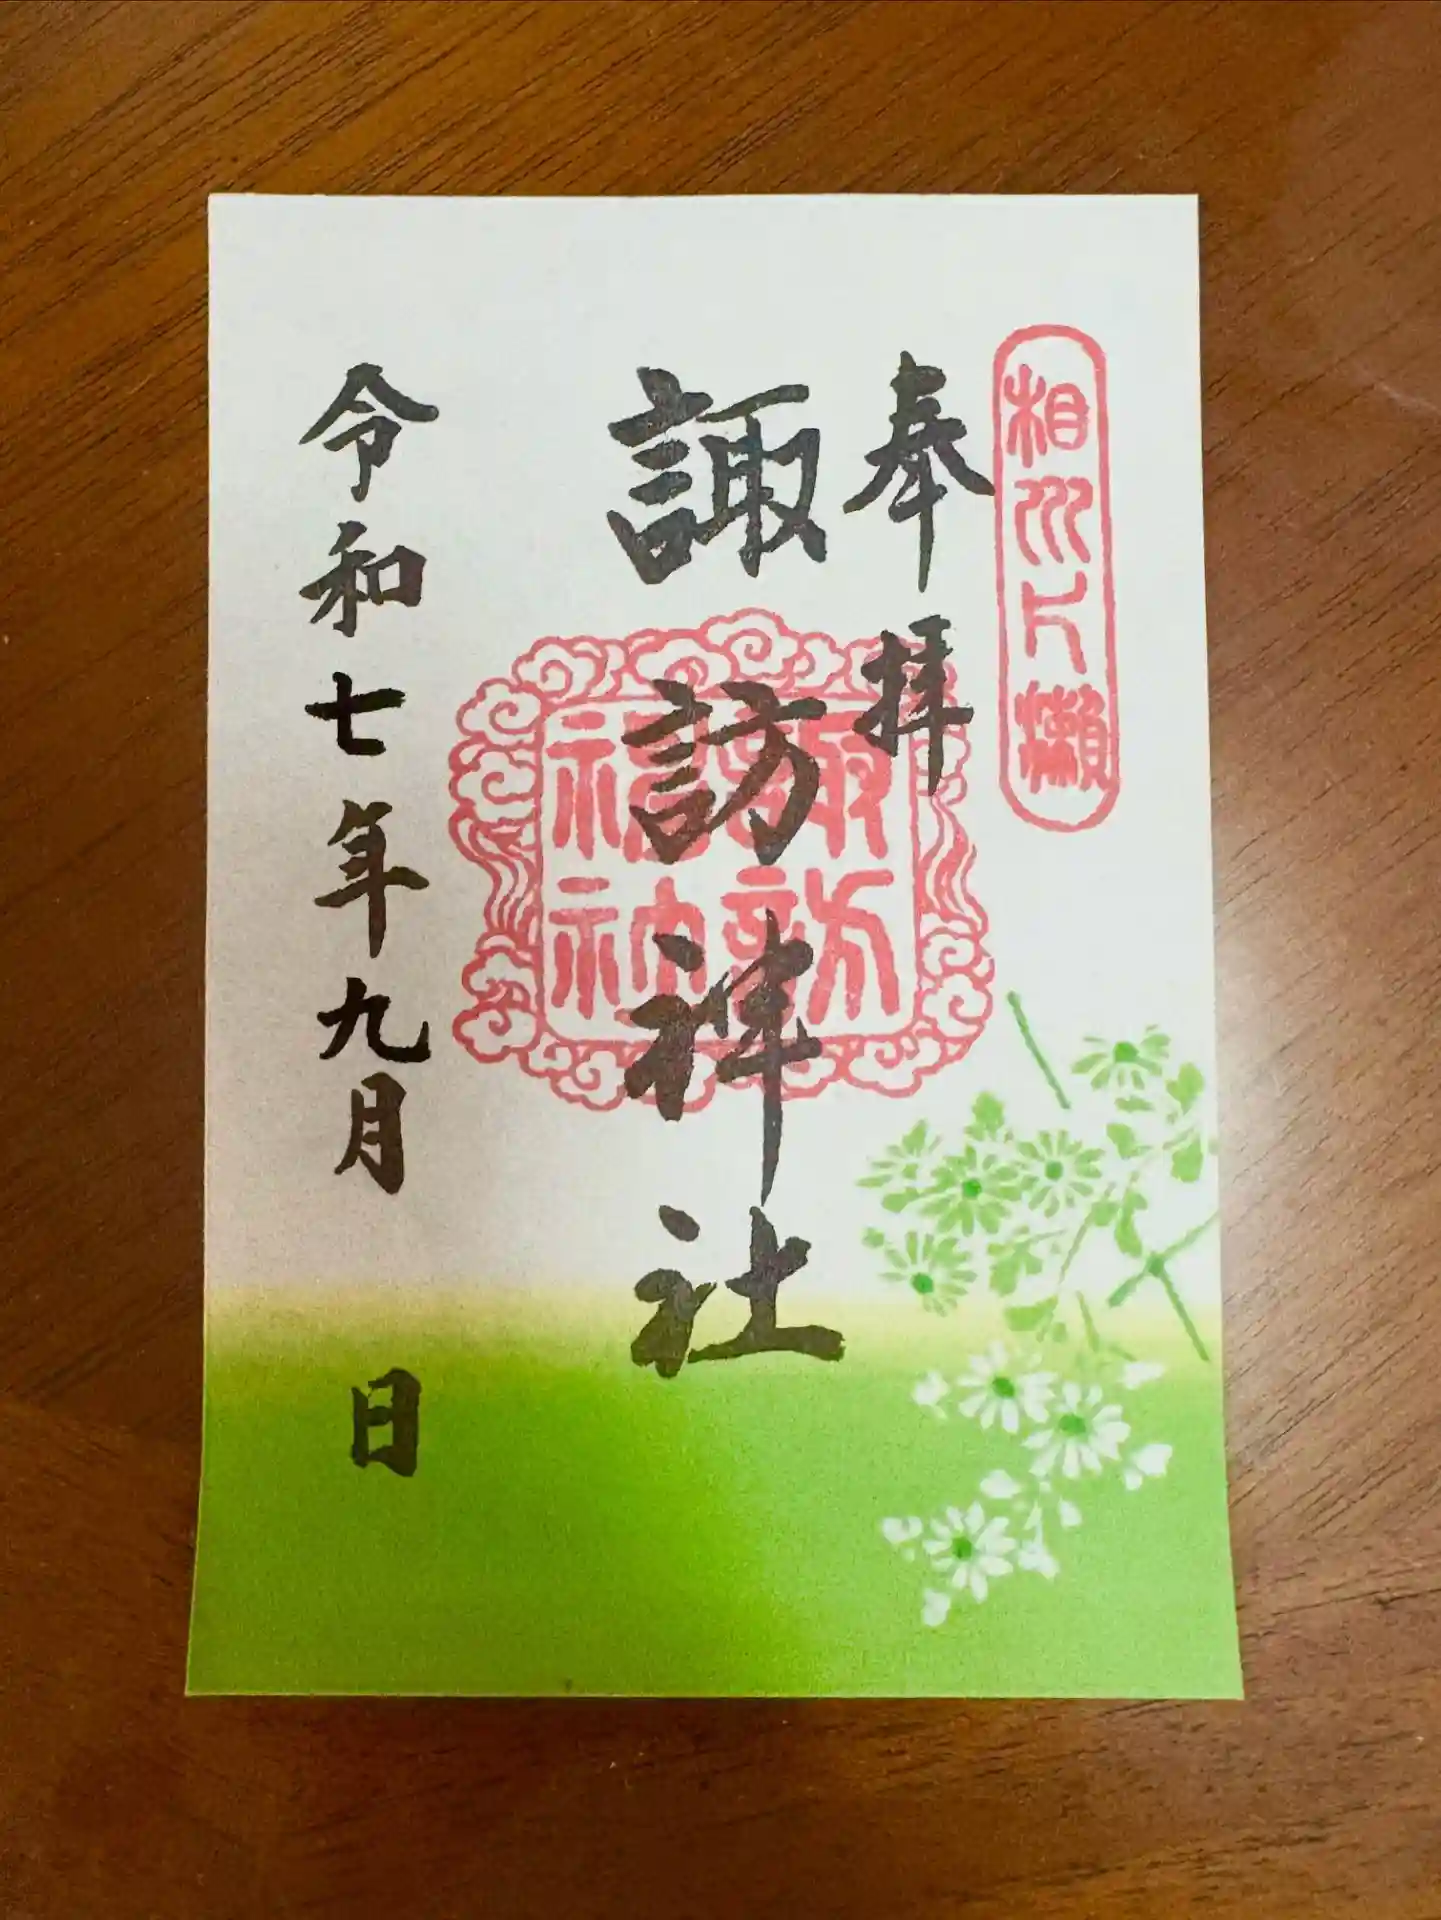 相州片瀬
奉拝
諏訪神社
諏訪
令和七年九月 日